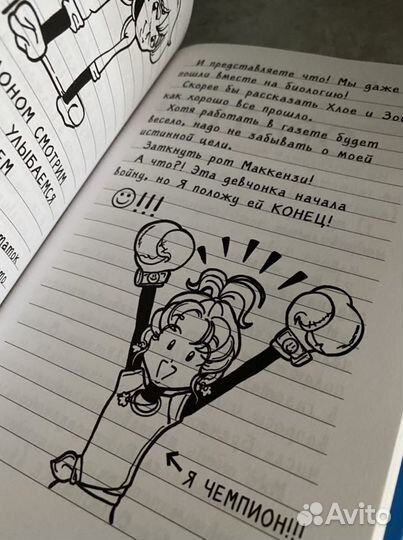 ЛОНОМ СМОТРИМ
УЛЫБАЕМСЯ
ЕМ
И представляете что! Мы даже
пошли вместе на биологию!
Скорее бы рассказать Хлое и Зои,
как хорошо все прошло.
Хотя работать в газете будет
весело, надо не забывать о моей
истинной цели.
Заткнуть рот Маккензи!
А что?! Эта девчонка начала
войну, но Я положу ей КОНЕЦ!
!!!
Я ЧЕМПИОН!!!
Avito